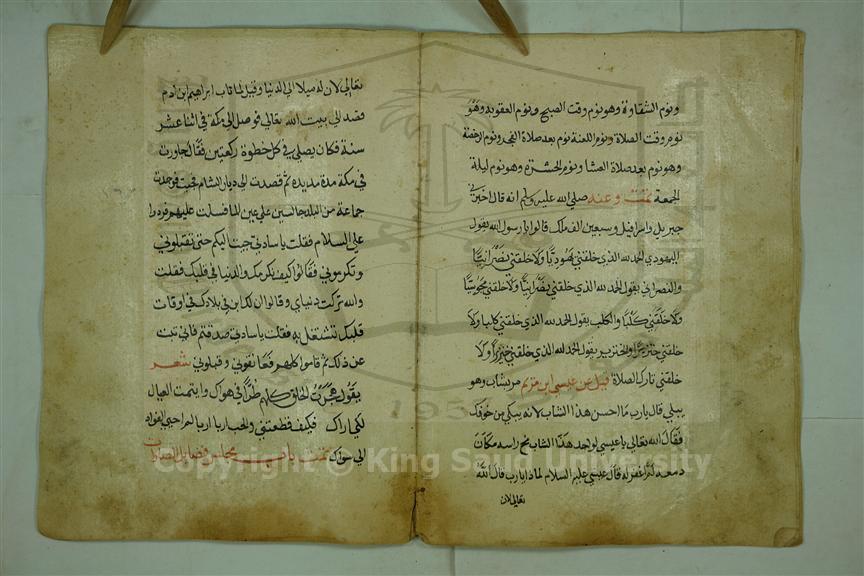 ونوم الشقاوة وهو نوم وقت الصبح ونوم العقوبة وهو
نوم وقت الصلاة ونوم اللعنة نوم بعد صلاة الفجر ونوم الرخصة
وهو نوم بعد صلاة العشا ونوم الحسرة وهو نوم ليلة
الجمعة تمت وعنه صلى الله عليه وسلم انه قال اخبرني
جبريل واسرافيل وسبعين الف ملك قالوا يا رسول الله يقول
اليهودي الحمد لله الذي خلقني يهوديا ولا خلقني نصرانيا
والنصراني يقول الحمد لله الذي خلقني نصرانيا ولا خلقني مجوسيا
ولا خلقني كلبا والكلب يقول الحمد لله الذي خلقني كلبا ولا
خلقني خنزيرا والخنزير يقول الحمد لله الذي خلقني خنزيرا ولا
خلقني تارك الصلاة قيل عن عيسى ابن مريم مر بشاب وهو
يبكي قال يارب ما احسن هذا الشاب لانه يبكي من خوفك
فقال الله تعالى يا عيسى لو اخذ هذا الشاب مخ راسه مكان
دمعه لم اغفر له قال عيسى عليه السلام لماذا يارب قال الله
تعالى لان
تعالى لان له ميلا الى الدنيا وقيل لما تاب ابراهيم ابن ادم
قصد الى بيت الله تعالى فوصل الى مكة في اثنا عشر
سنة فكان يصلي في كل خطوة ركعتين فقال جاورت
في مكة مدة مديدة ثم قصدت الى ديار الشام فجيت فوجدت
جماعة من البلد جالسين على عين الما فسلت عليهم فردوا
علي السلام فقلت يا سادتي جيت اليكم حتى تقبلوني
وتكرموني فقالوا كيف نكرمك والدنيا في قلبك فقلت
والله تركت دنياي وقالوا ان لك ابن في بلادك في اوقات
قلبك تشتغل به فقلت يا سادتي صدقتم فاني تبت
عن ذلك ثم قاموا كلهم فعانقوني وقبلوني شعر
يقول هجرت الخلق كلهم طرا في هواك وايتمت العيال
لكي اراك فكيف قطعتني والحب اربا اربا لما حن الفواد
الى سواك تمت باب مجلس وفضايل الصلوات
Copyright © King Saud University